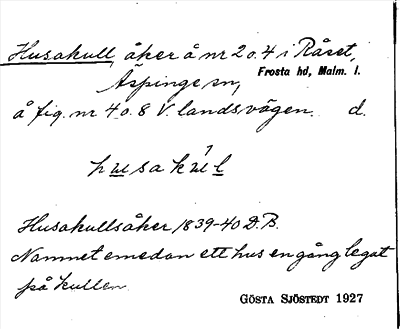 Husakull, åker å nr 2 o. 4 i Råset,
Frosta hd, Malm. l.
Äspinge sn,
å fig. nr 4 o. 8 V. landsvägen. d.
husakul
Husakullsåker 1839-40 D.B.
Namnet emedan ett hus en gång legat
på kullen.
GÖSTA SJÖSTEDT 1927